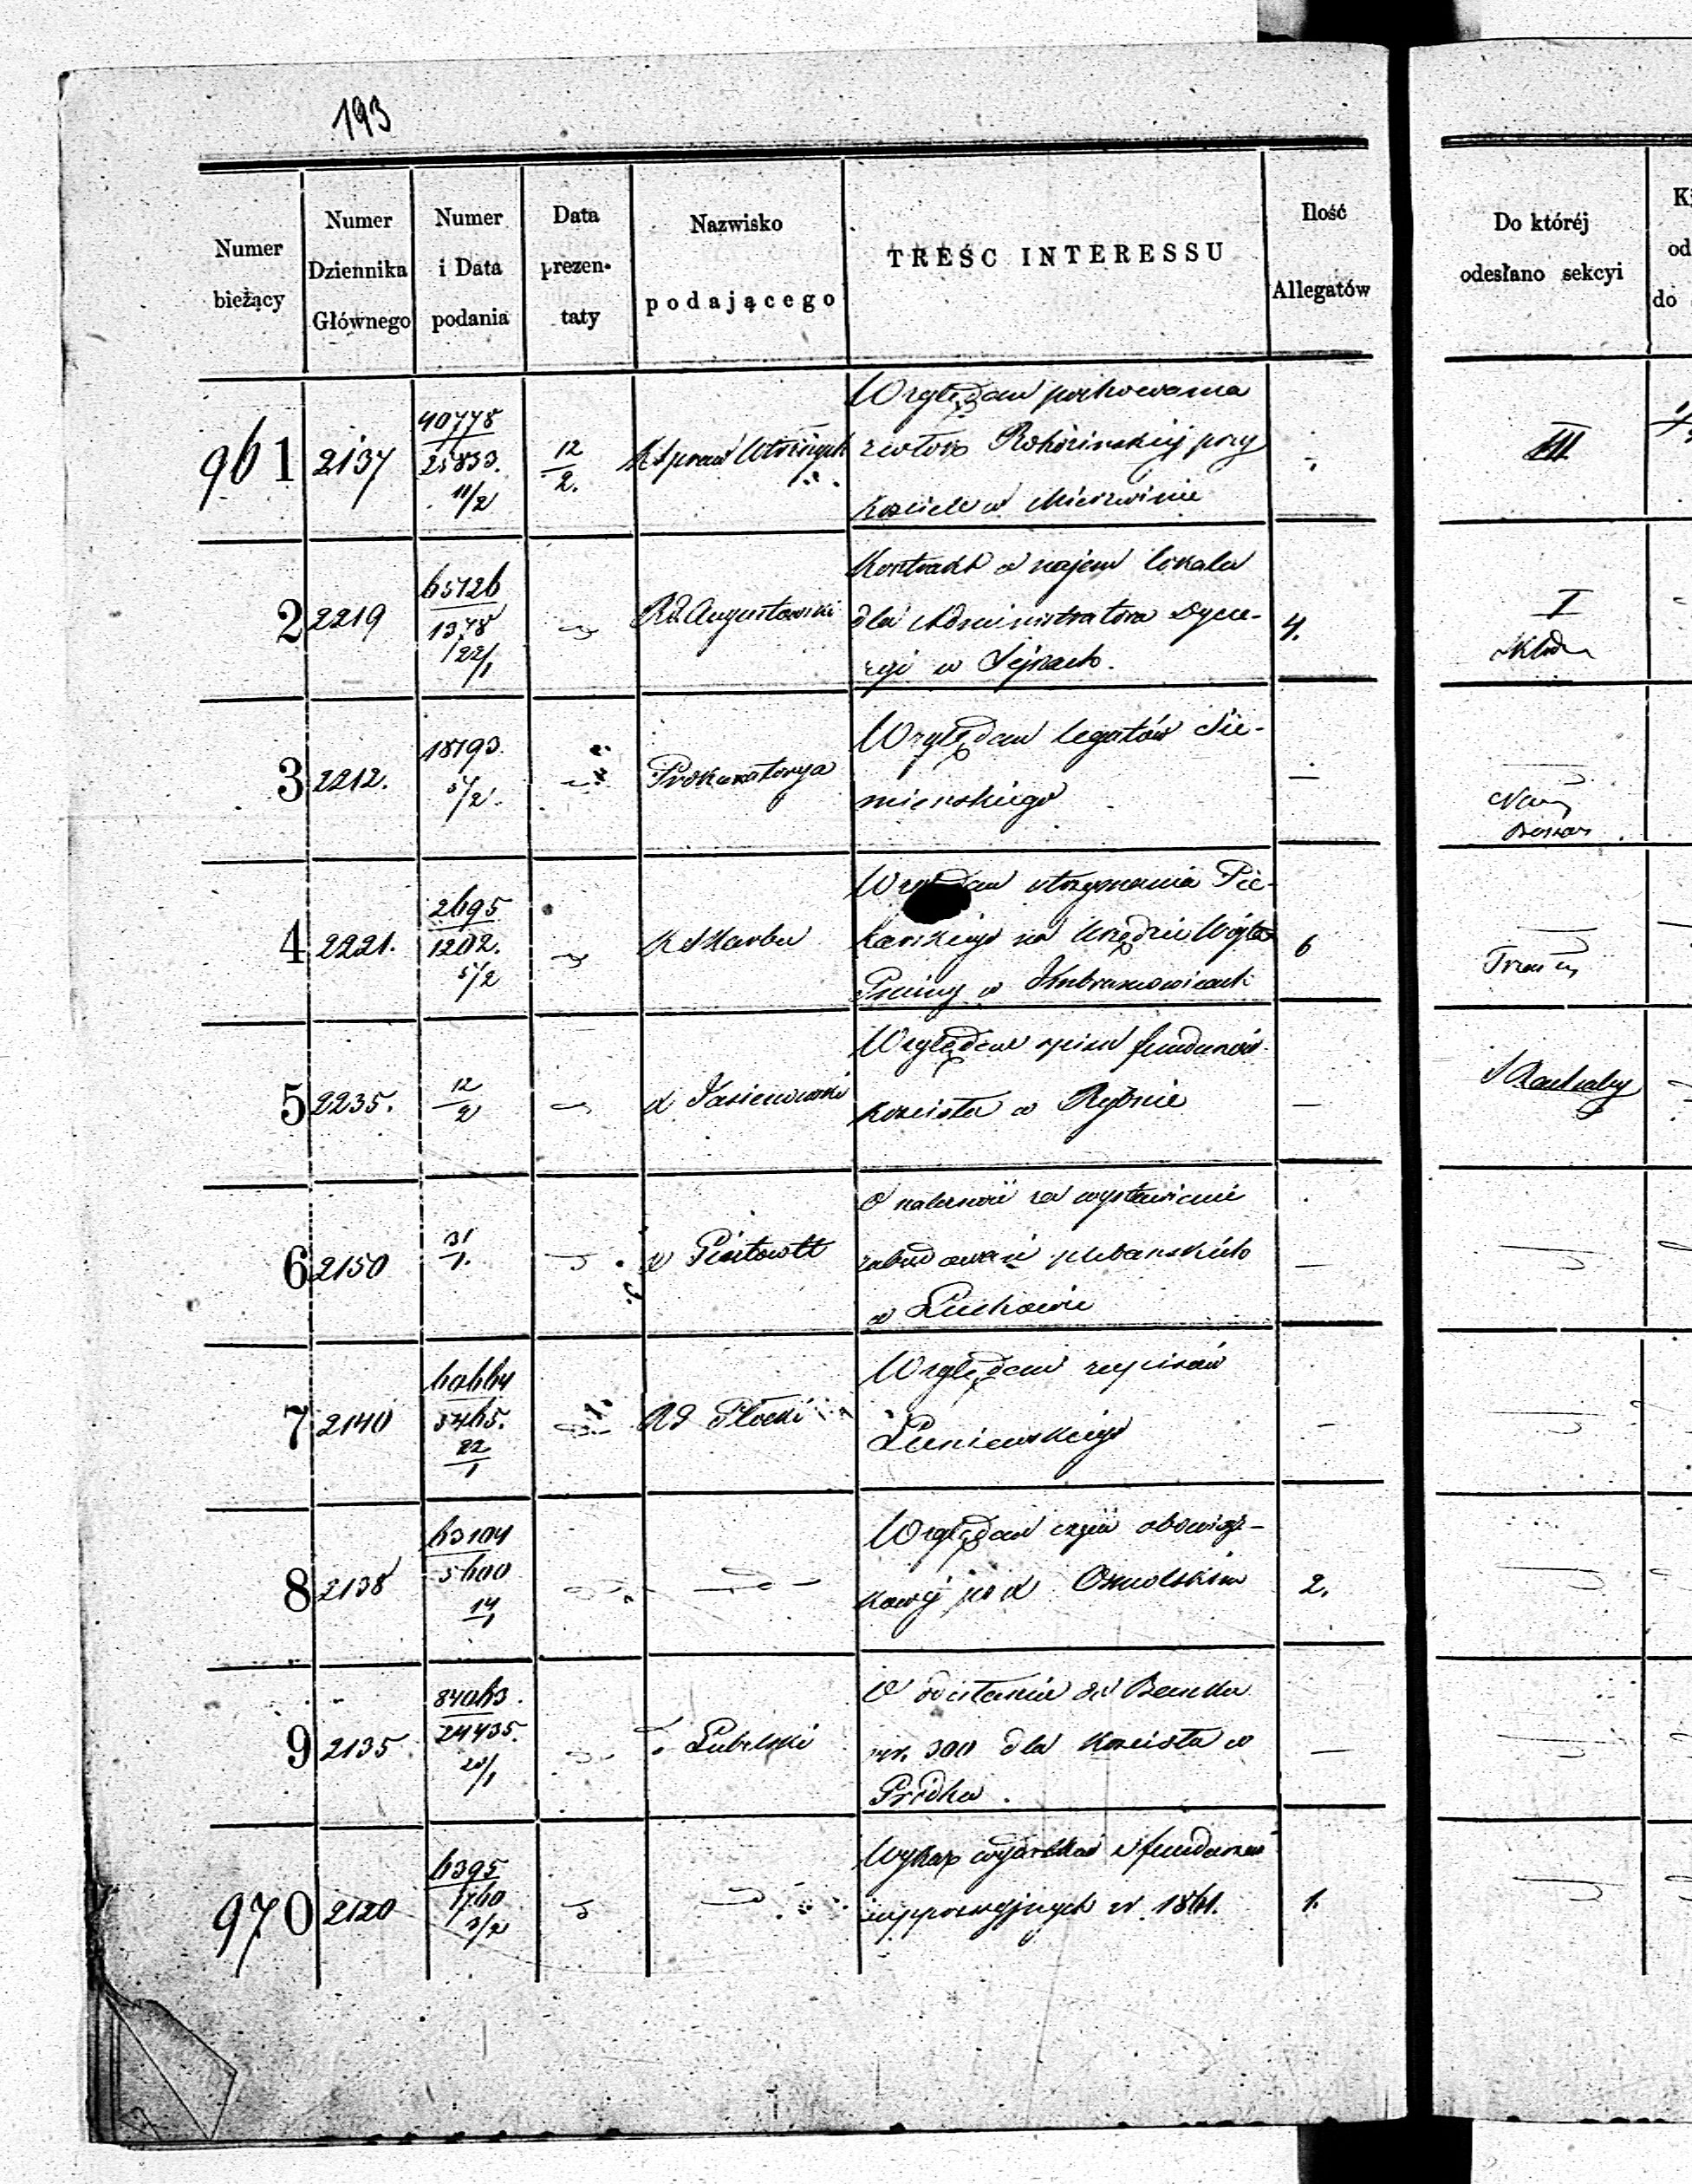 193
Numer bieżący | Numer Dziennika Głównego | Numer i Data podania | Data prezen- taty | Nazwisko podającego | TREŚĆ INTERESSU | Ilość Allegatów | Do któréj odesłano sekcyi
961 | 2137 | 40778 / 25833. 11/2 | 12/2. | K Spraw Wewnętrznych | Względem pochowania
zwłok Rokosinskiej przy
kosciele w | III
2 | 2219 | 65726 / 1378 22/1 | R. G. Augustowski | Kontrakt o najem lokalu
dla Administratora Dyece-
zyi w Sejnach. | 4. | I
3 | 2212. | 18793. 5/2. | Prokuratorya | Względem legatów Sie-
mienskiego | —
4 | 2221. | 2695 / 1202. 5/2 | K Skarbu | Względem utrzymania Pie-
karskiego na Urzędzie Wójta
Gminy w | 6
5 | 2235. | 12/2 | X Jasieniewski | Względem spisu funduszów
kościoła w Rybnie | —
6 | 2150 | 31/1. | X Piottowtt | O należność za wystawienie
zabudowań plebanskich
w Łuckowie | —
7 | 2140 | 60664 / 5465. 22/1 | R G Płocki | Względem zapisów
Łuniewskiego | —
8 | 2138 | 63104 / 5600 14/1 | Względem czyn obowiąz-
kowej po X Osmolskim | 2.
9 | 2135 | 84063. / 24435. 20/1 | Lubelski | O odesłanie do Banku
rsr. 300 dla kościoła w | —
970 | 2120 | 6395 / 1760 3/2 | Wykaz wydatków z funduszów
suppressyjnych z r. 1861. | 1.